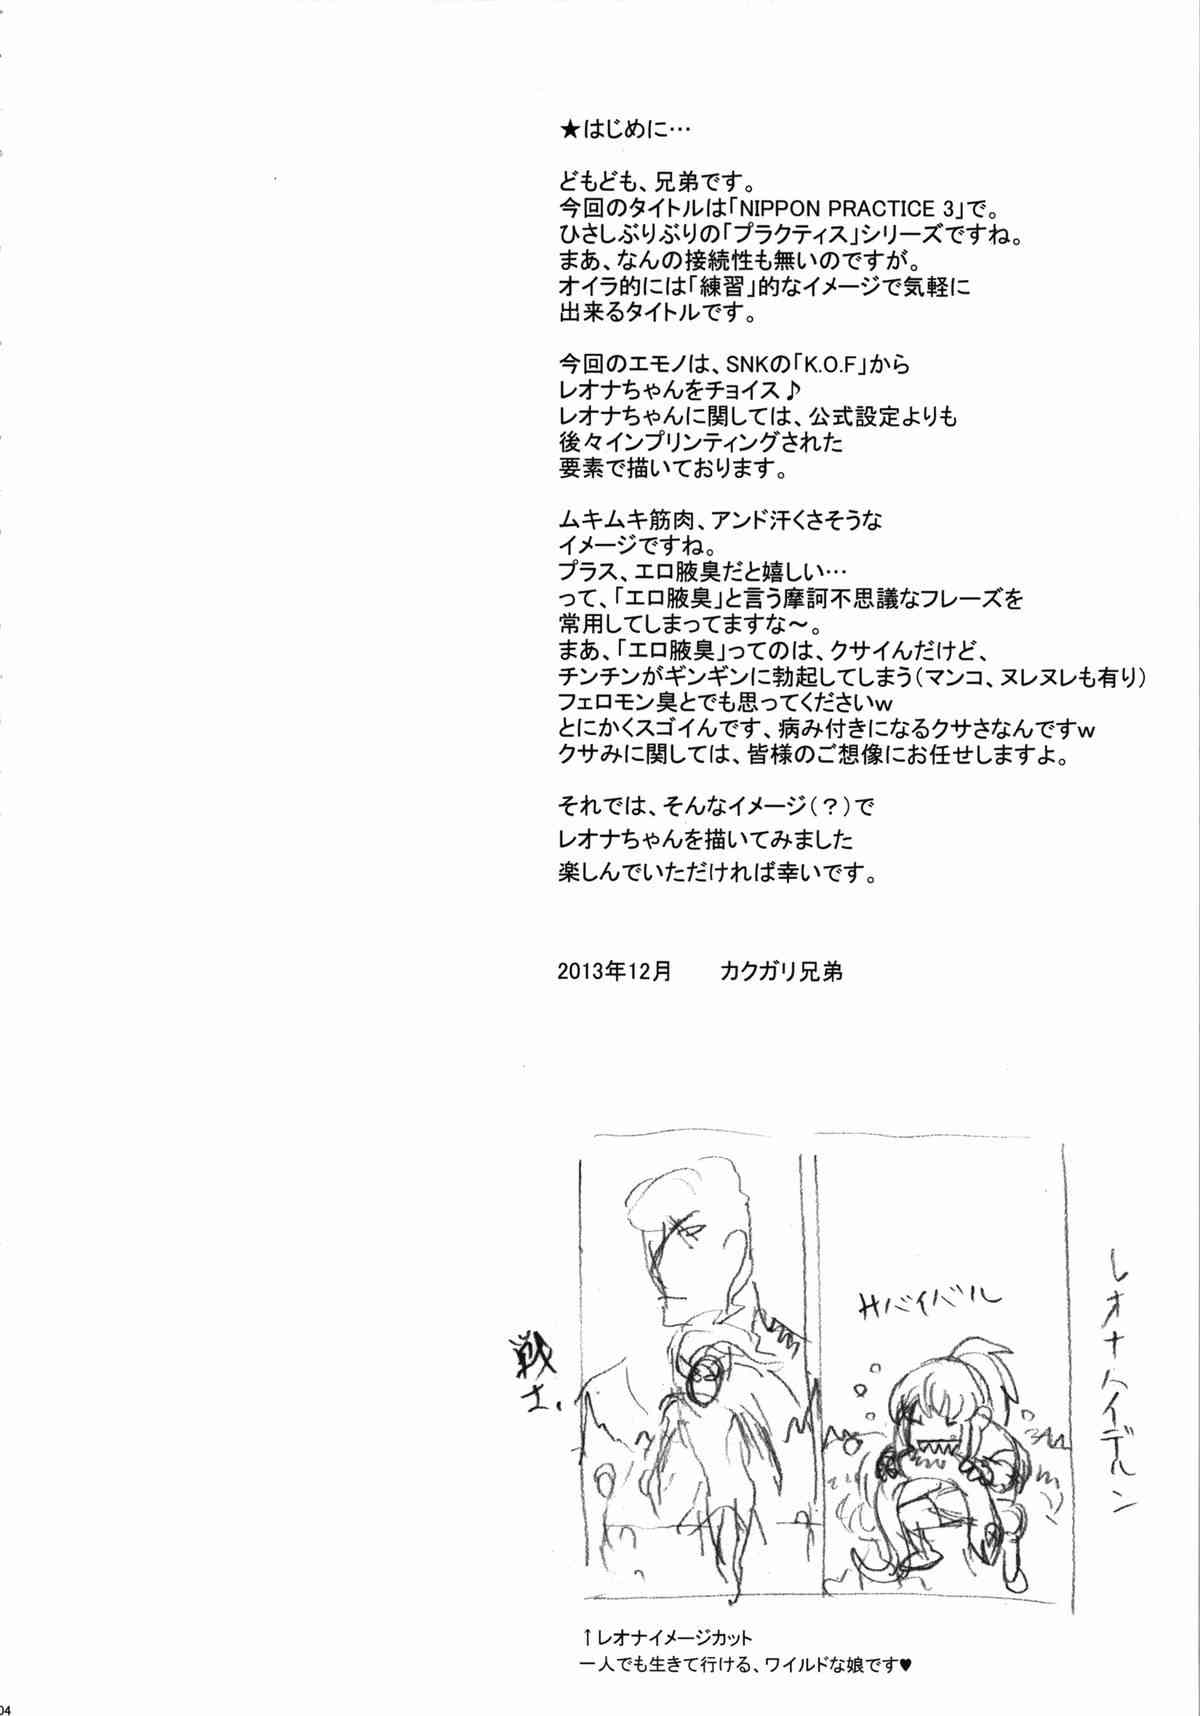 ★はじめに…
どもども、兄弟です。
今回のタイトルは「NIPPON PRACTICE 3」で。
ひさしぶりぶりの「プラクティス」シリーズですね。
まあ、なんの接続性も無いのですが。
オイラ的には「練習」的なイメージで気軽に
出来るタイトルです。
今回のエモノは、SNKの「K.O.F」から
レオナちゃんをチョイス♪
レオナちゃんに関しては、公式設定よりも
後々インプリンティングされた
要素で描いております。
ムキムキ筋肉、アンド汗くさそうな
イメージですね。
プラス、エロ腋臭だと嬉しい…
って、「エロ腋臭」と言う摩訶不思議なフレーズを
常用してしまってますな～。
まあ、「エロ腋臭」ってのは、クサイんだけど、
チンチンがギンギンに勃起してしまう（マンコ、ヌレヌレも有り）
フェロモン臭とでも思ってくださいｗ
とにかくスゴイんです、病み付きになるクサさなんですｗ
クサみに関しては、皆様のご想像にお任せしますよ。
それでは、そんなイメージ（？）で
レオナちゃんを描いてみました
楽しんでいただければ幸いです。
2013年12月　　カクガリ兄弟
レオナハイデルン
サバイバル
戦士.
↑レオナイメージカット
一人でも生きて行ける、ワイルドな娘です♥
04